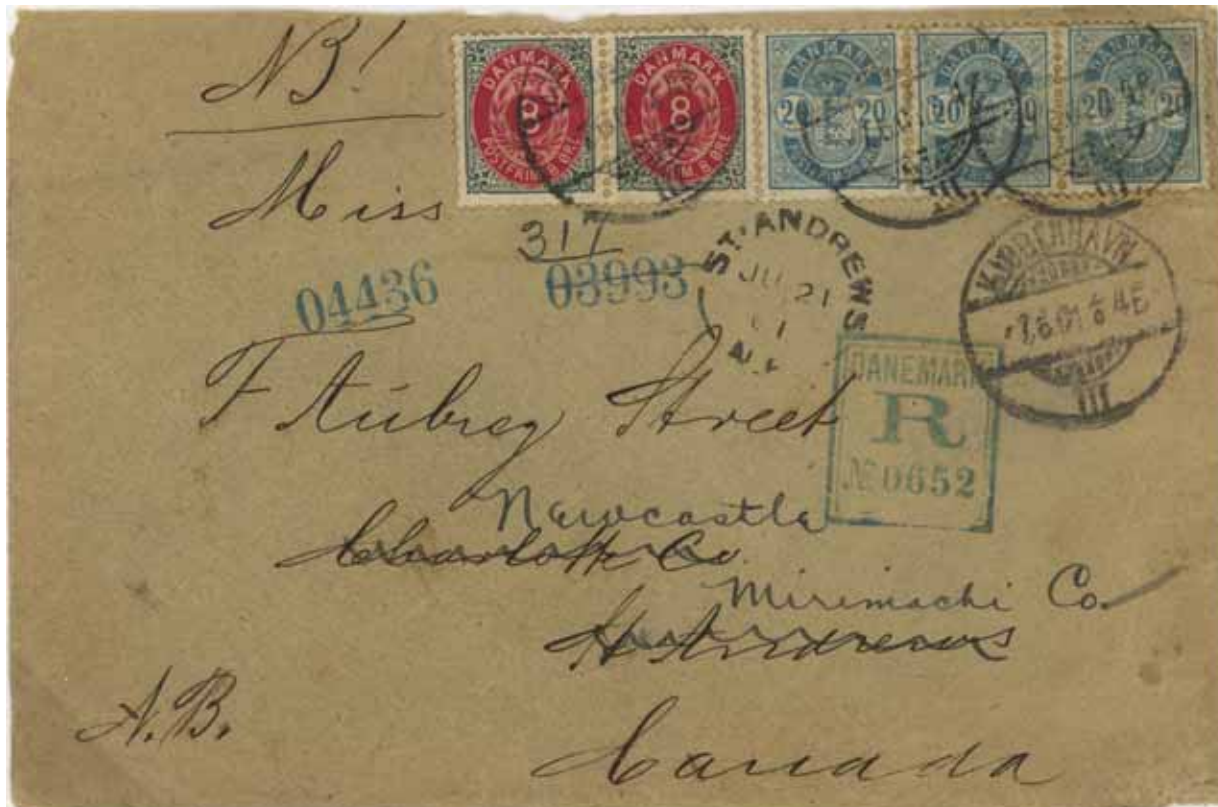 NB!
DANMARK 8 POSTFRIM. 8 ØRE
DANMARK 8 POSTFRIM. 8 ØRE
DANMARK 20 20
DANMARK 20 20
DANMARK 20 20
Miss
317
04436 03993
ST. ANDREWS
JU 21
KJØBENHAVN
III
DANEMARK
R
No 0652
F Aubrey Street
Newcastle
Charlotte Co.
Mirimachi Co.
St Andrews
A.B.
Canada